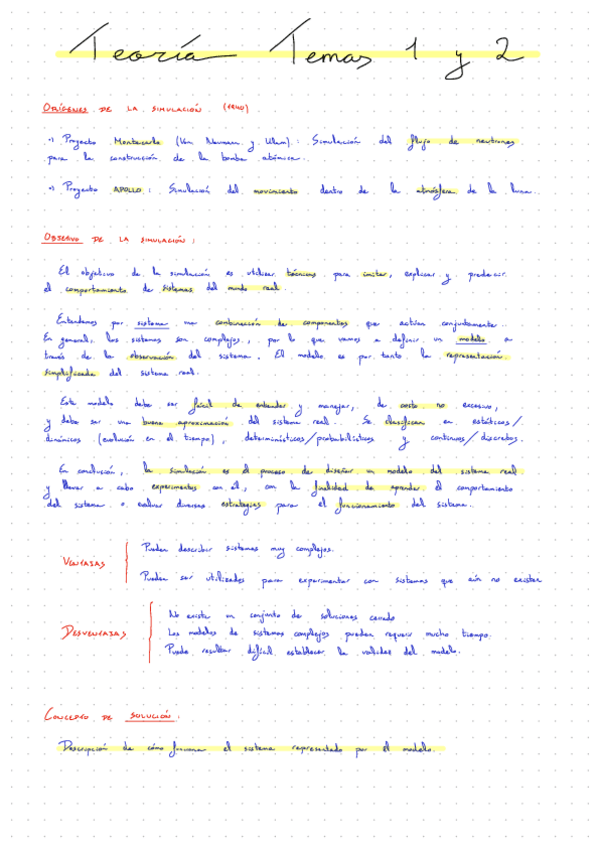 Teoría Temas 1 y 2
ORÍGENES DE LA SIMULACIÓN.
Proyecto Montecarlo (Von Neumann y Ulam): Simulación del flujo de neutrones
para la construcción de la bomba atómica.
Proyecto APOLLO: Simulación del movimiento dentro de la atmósfera de la luna.
OBJETIVO DE LA SIMULACIÓN:
El objetivo de la simulación es utilizar técnicas para imitar, explicar y predecir
el comportamiento de sistemas del mundo real.
Entendemos por sistema una combinación de componentes que actúan conjuntamente.
En general, los sistemas son complejos, por lo que vamos a definir un modelo a
través de la observación del sistema. El modelo es por tanto la representación
simplificada del sistema real.
Este modelo debe ser fácil de entender y manejar, de costo no excesivo,
y debe ser una buena aproximación del sistema real. Se clasifican en estáticos/
dinámicos (evolución en el tiempo), determinísticos/probabilísticos y continuos/discretos.
En conclusión, la simulación es el proceso de diseñar un modelo del sistema real
y llevar a cabo experimentos con él, con la finalidad de aprender el comportamiento
del sistema o evaluar diversas estrategias para el funcionamiento del sistema.
VENTAJAS
Pueden describir sistemas muy complejos.
Pueden ser utilizados para experimentar con sistemas que aún no existen
DESVENTAJAS
No existe un conjunto de soluciones cerrado
Los modelos de sistemas complejos pueden requerir mucho tiempo.
Puede resultar difícil establecer la validez del modelo.
CONCEPTO DE SOLUCIÓN:
Descripción de cómo funciona el sistema representado por el modelo.